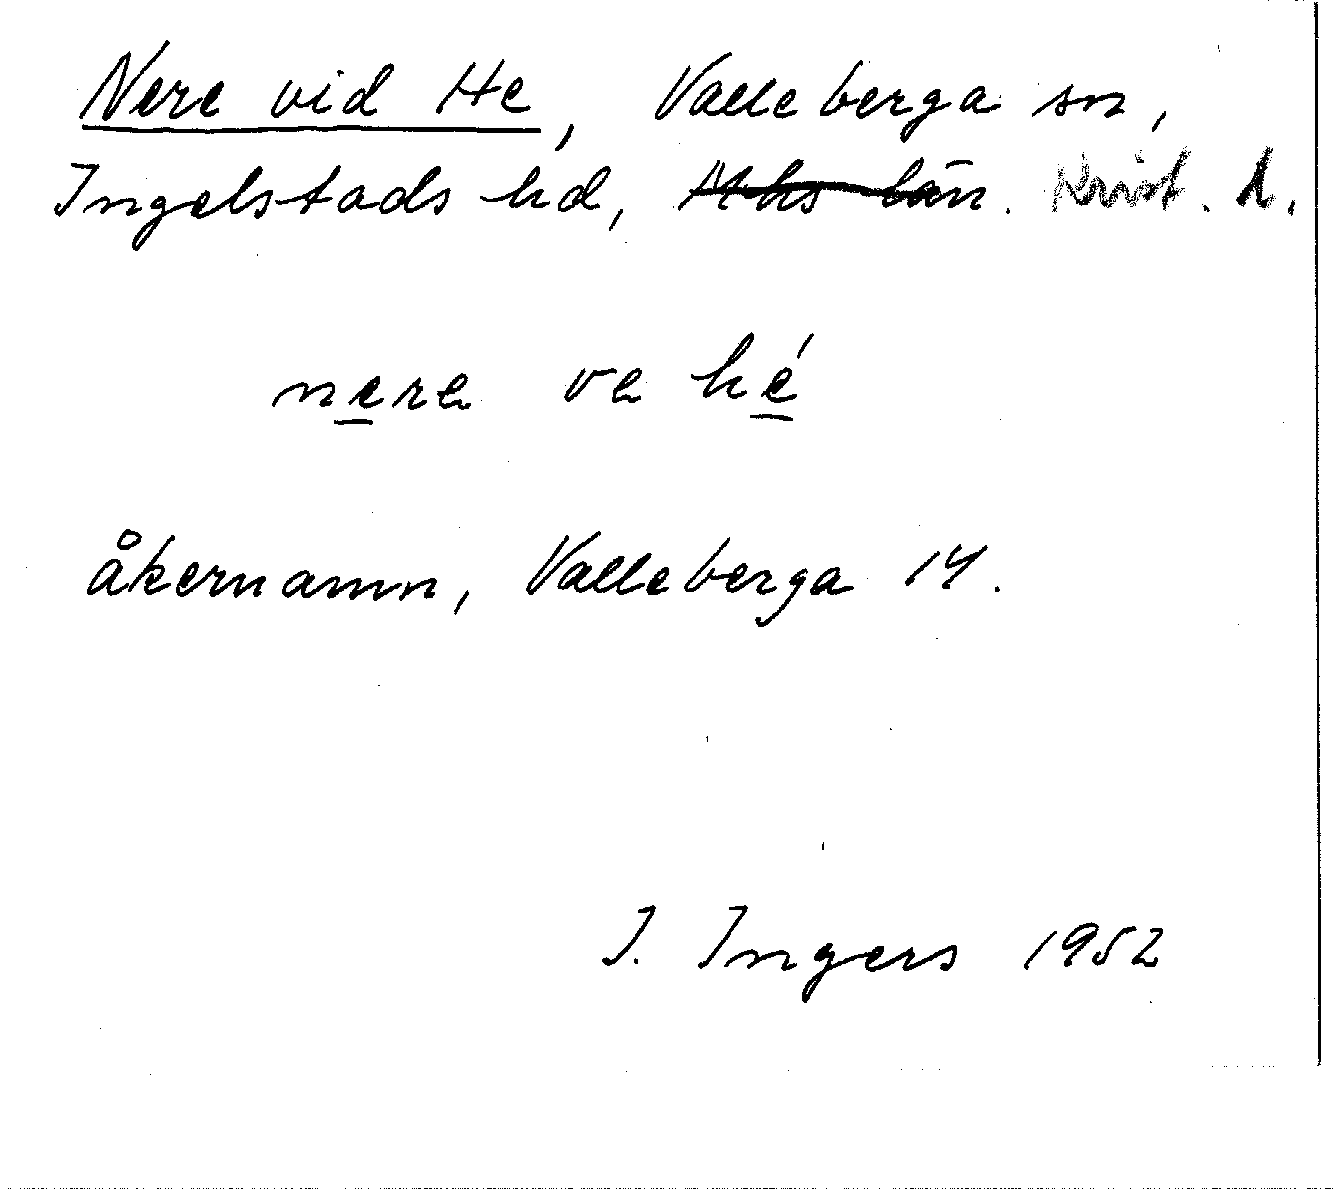 Nere vid He, Valleberga sn,
Ingelstads hd, Mhs län. Krist. l.
nere ve hé
åkernamn, Valleberga 14.
I. Ingers 1952